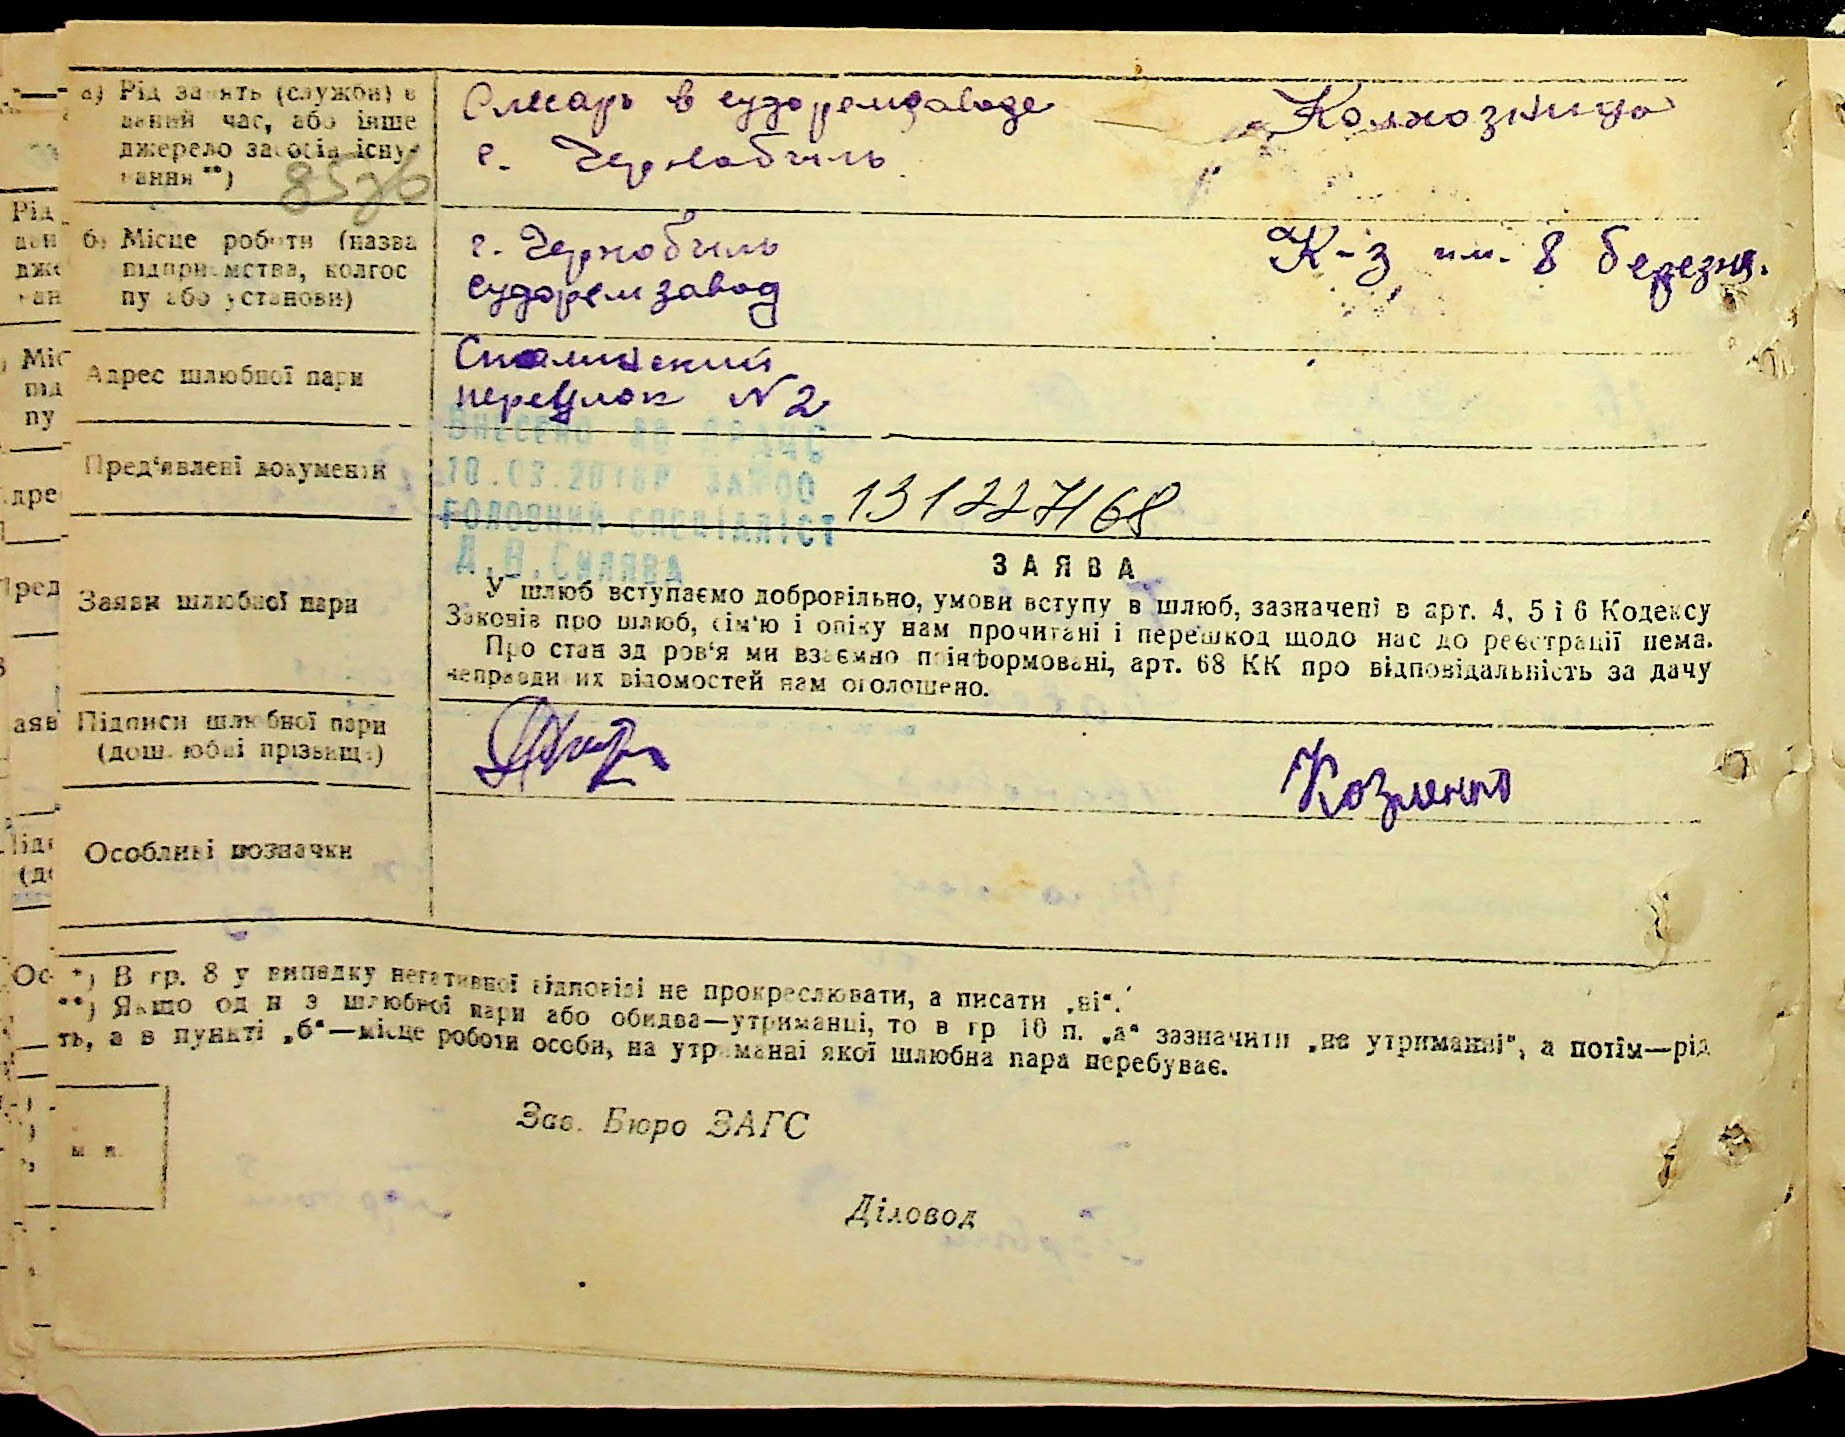 а) Рід занять (служби) в
даний час, або інше
джерело засобів існу-
вання **)
Слесарь в судоремзаводе
г. Чернобиль
Колхозница
б) Місце роботи (назва
підприємства, колгос
пу або установи)
г. Чернобиль
судоремзавод
К-з им. 8 березня.
Адрес шлюбної пари
переулок N2
Пред'явлені документи
Внесено до ДРАЦС
ГОЛОВНИЙ СПЕЦІАЛІСТ
131227168
ЗАЯВА
Заяви шлюбної пари
У шлюб вступаємо добровільно, умови вступу в шлюб, зазначені в арт. 4, 5 і 6 Кодексу
Законів про шлюб, сім'ю і опіку нам прочитані і перешкод щодо нас до реєстрації нема.
Про стан здоров'я ми взаємно поінформовані, арт. 68 КК про відповідальність за дачу
неправдивих відомостей нам оголошено.
Підписи шлюбної пари
(дошлюбні прізвища)
Козленко
Особливі позначки
*) В гр. 8 у випадку негативної відповіді не прокреслювати, а писати „ні“.
**) Якщо один з шлюбної пари або обидва—утриманці, то в гр 10 п. „а“ зазначити „на утриманні“, а потім—рід
ть, а в пункті „б“—місце роботи особи, на утриманні якої шлюбна пара перебуває.
м. п.
Зав. Бюро ЗАГС
Діловод